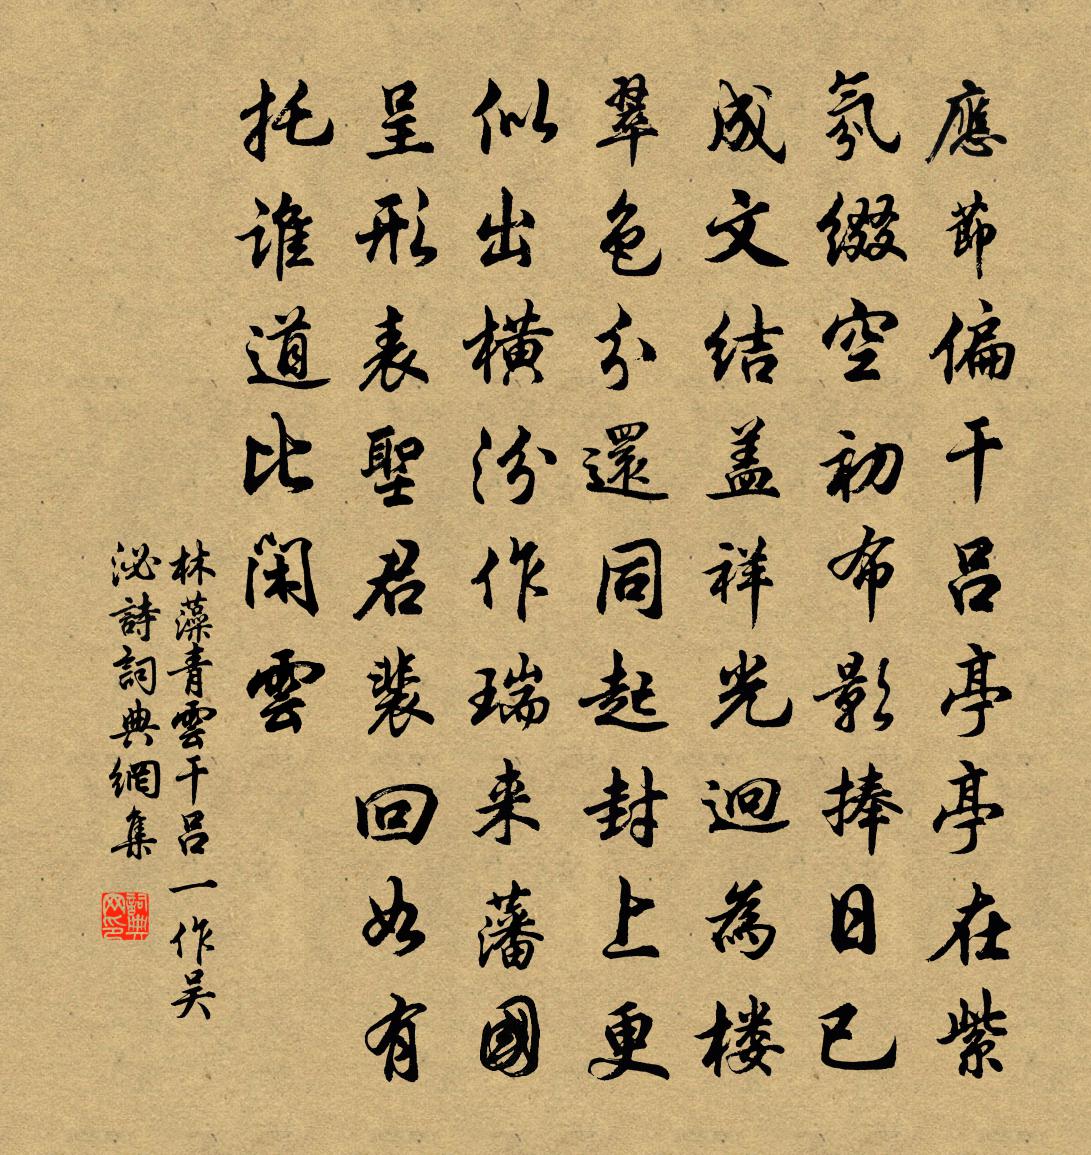 應節偏干呂亭亭在紫
氛綴空初布影捧日已
成文結盖祥光迥為楼
翠色分還同起封上更
似出横汾作瑞来藩國
呈形表聖君裴回如有
托谁道比闲雲
林藻青雲干呂一作吴
泌詩詞典網集
詞典网印